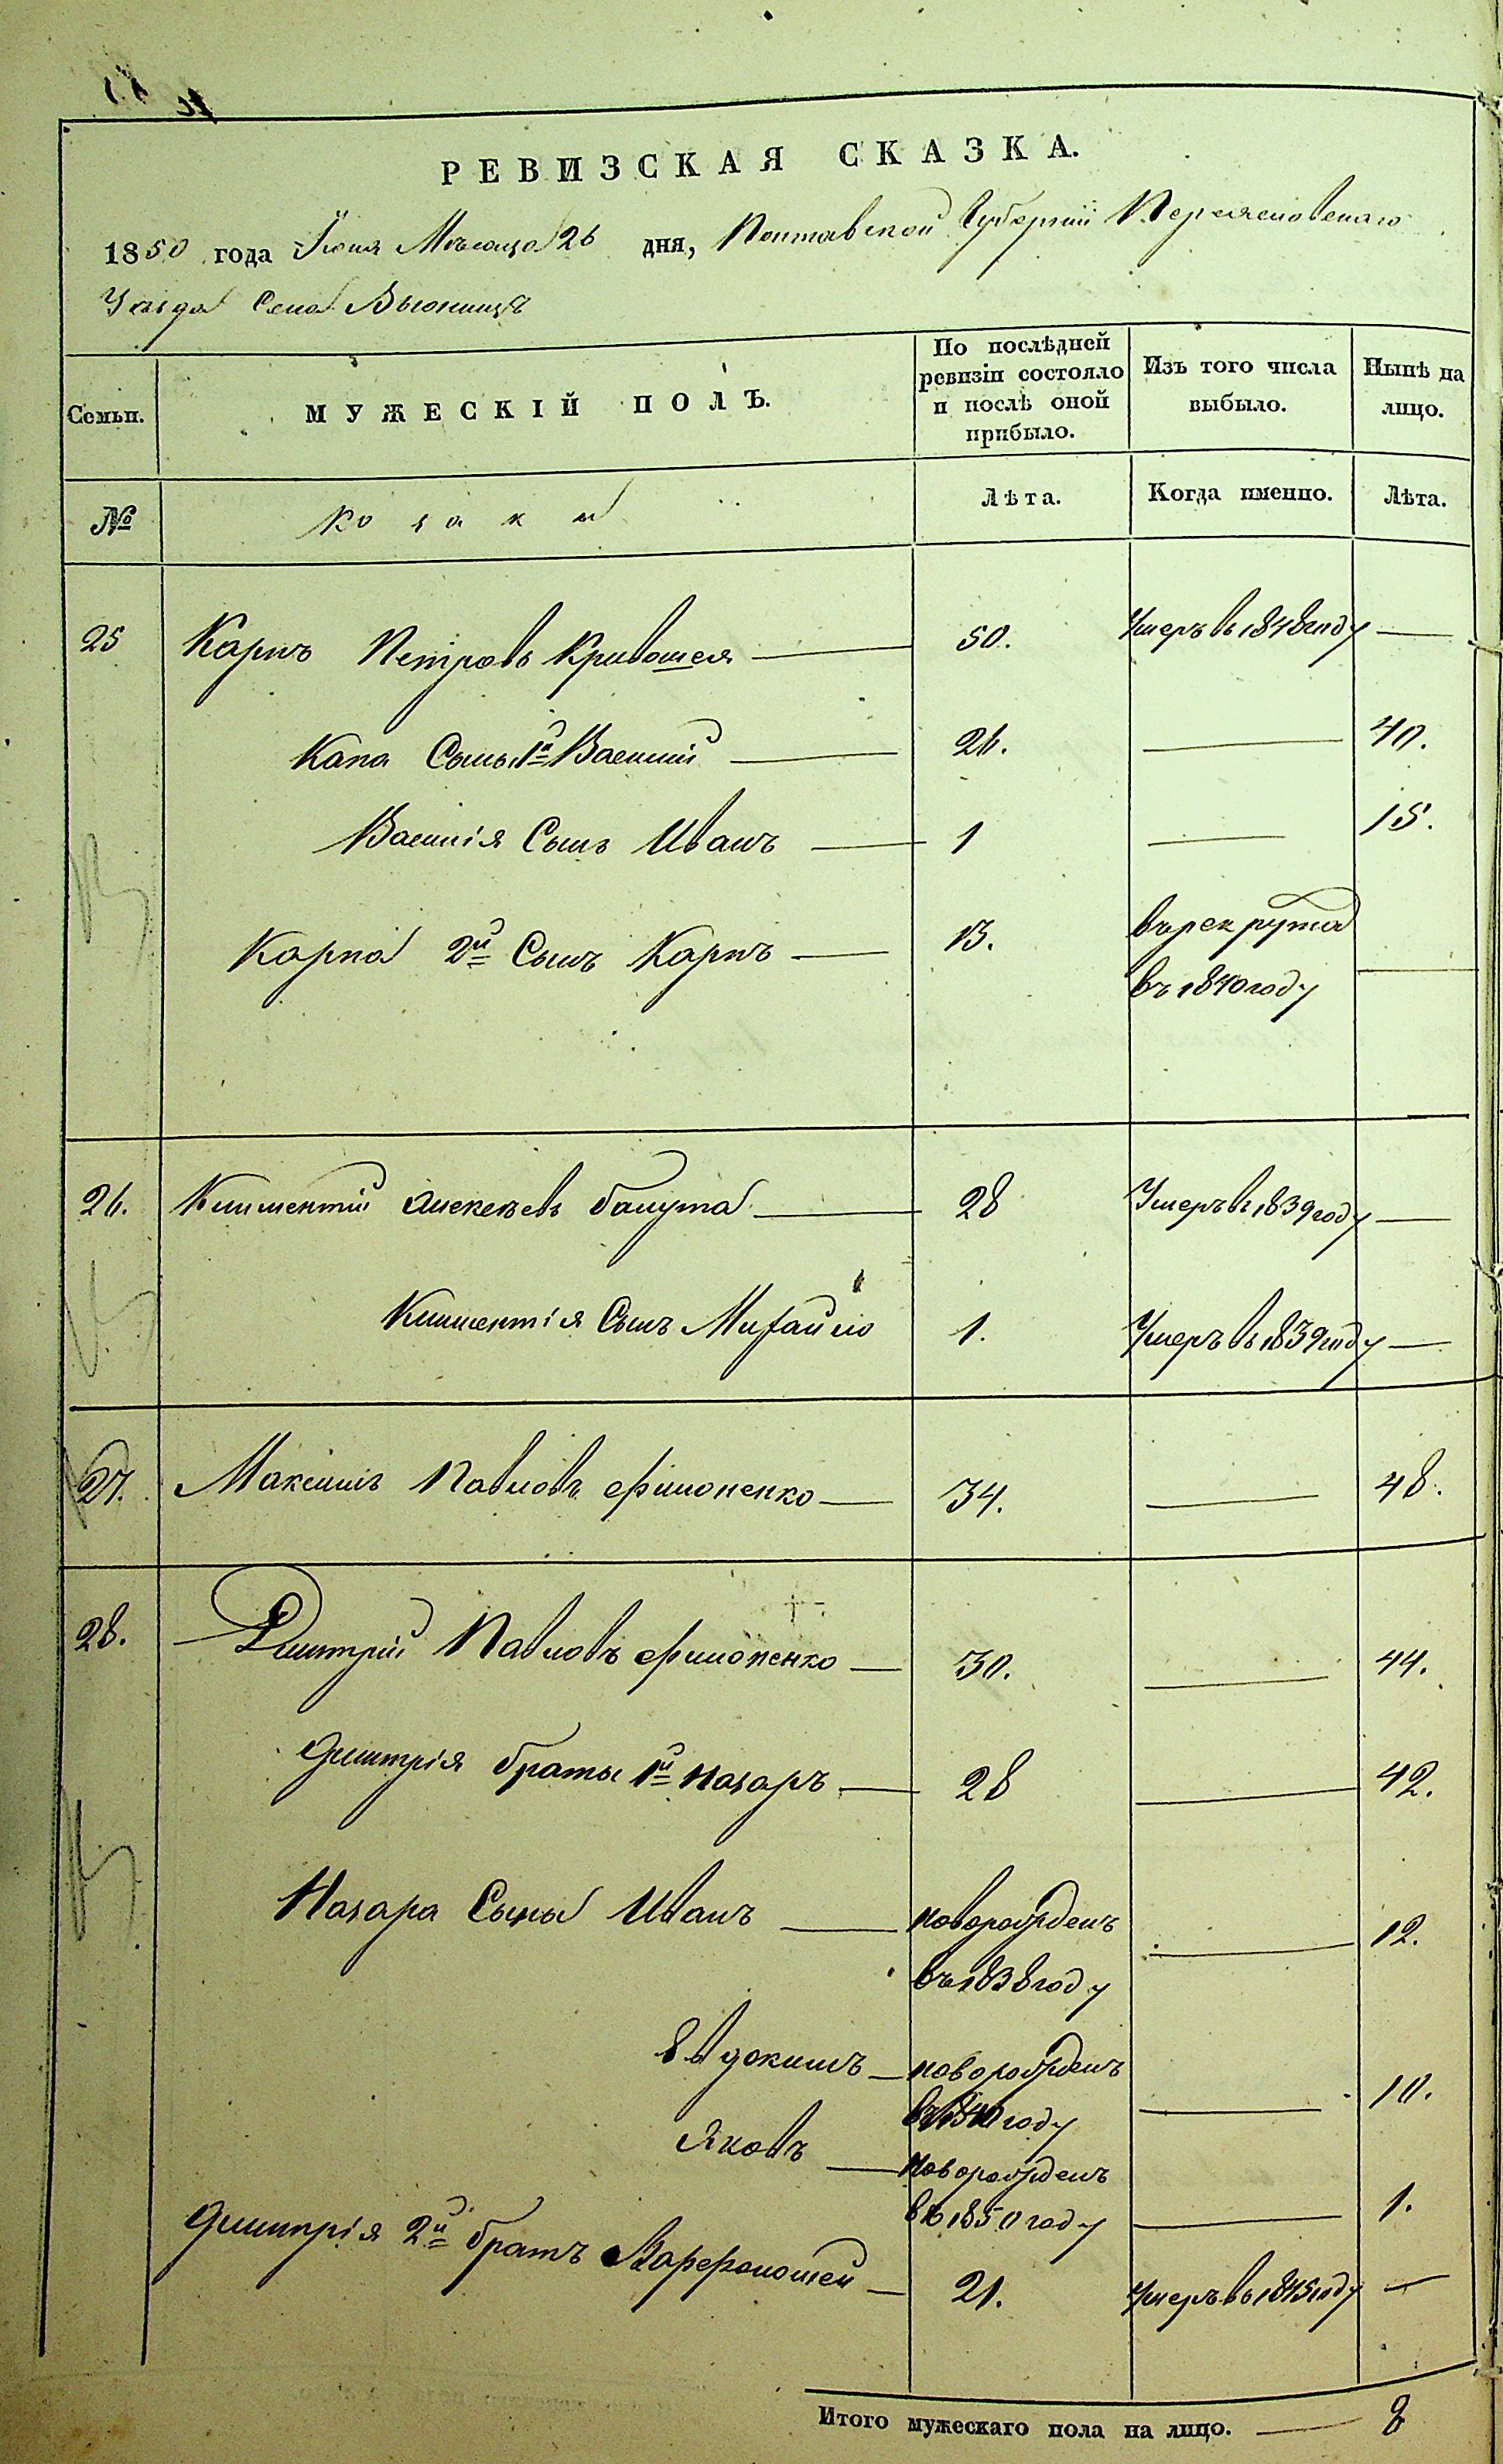 РЕВИЗСКАЯ СКАЗКА.
1850 года Іюня Мѣсяца 26 дня, Полтавской Губерніи Переяславскаго
Уѣзда Села Вьюнищъ
Семьи. МУЖЕСКІЙ ПОЛЪ. По послѣдней ревизіи состояло и послѣ оной прибыло. Изъ того числа выбыло. Нынѣ на лицо.
№ Козаки Лѣта. Когда именно. Лѣта.
25 Карпъ Петровъ Кривошея 50. Умеръ въ 1848 году
Капа Сыны 1й Василій 26. 40.
Василія Сынъ Иванъ 1 15.
Карпа 2й Сынъ Карпъ 13. въ рекрута
въ 1840 году
26. Климентій Алексѣевъ балута 28 Умеръ въ 1839 году
Климентія Сынъ Михайло 1. Умеръ въ 1839 году
27. Максимъ Павловъ Филоненко 34. 48.
28. Дмитрій Павловъ Филоненко 30. 44.
Дмитрія браты 1й Назаръ 28 42.
Назара Сыны Иванъ новорожденъ 12.
въ 1838 году
Евдокимъ новорожденъ 10.
въ 1840 году
Яковъ новорожденъ
въ 1850 году 1.
Дмитрія 2й братъ Варфоломей 21. Умеръ въ 1845 году
Итого мужескаго пола на лицо. 8